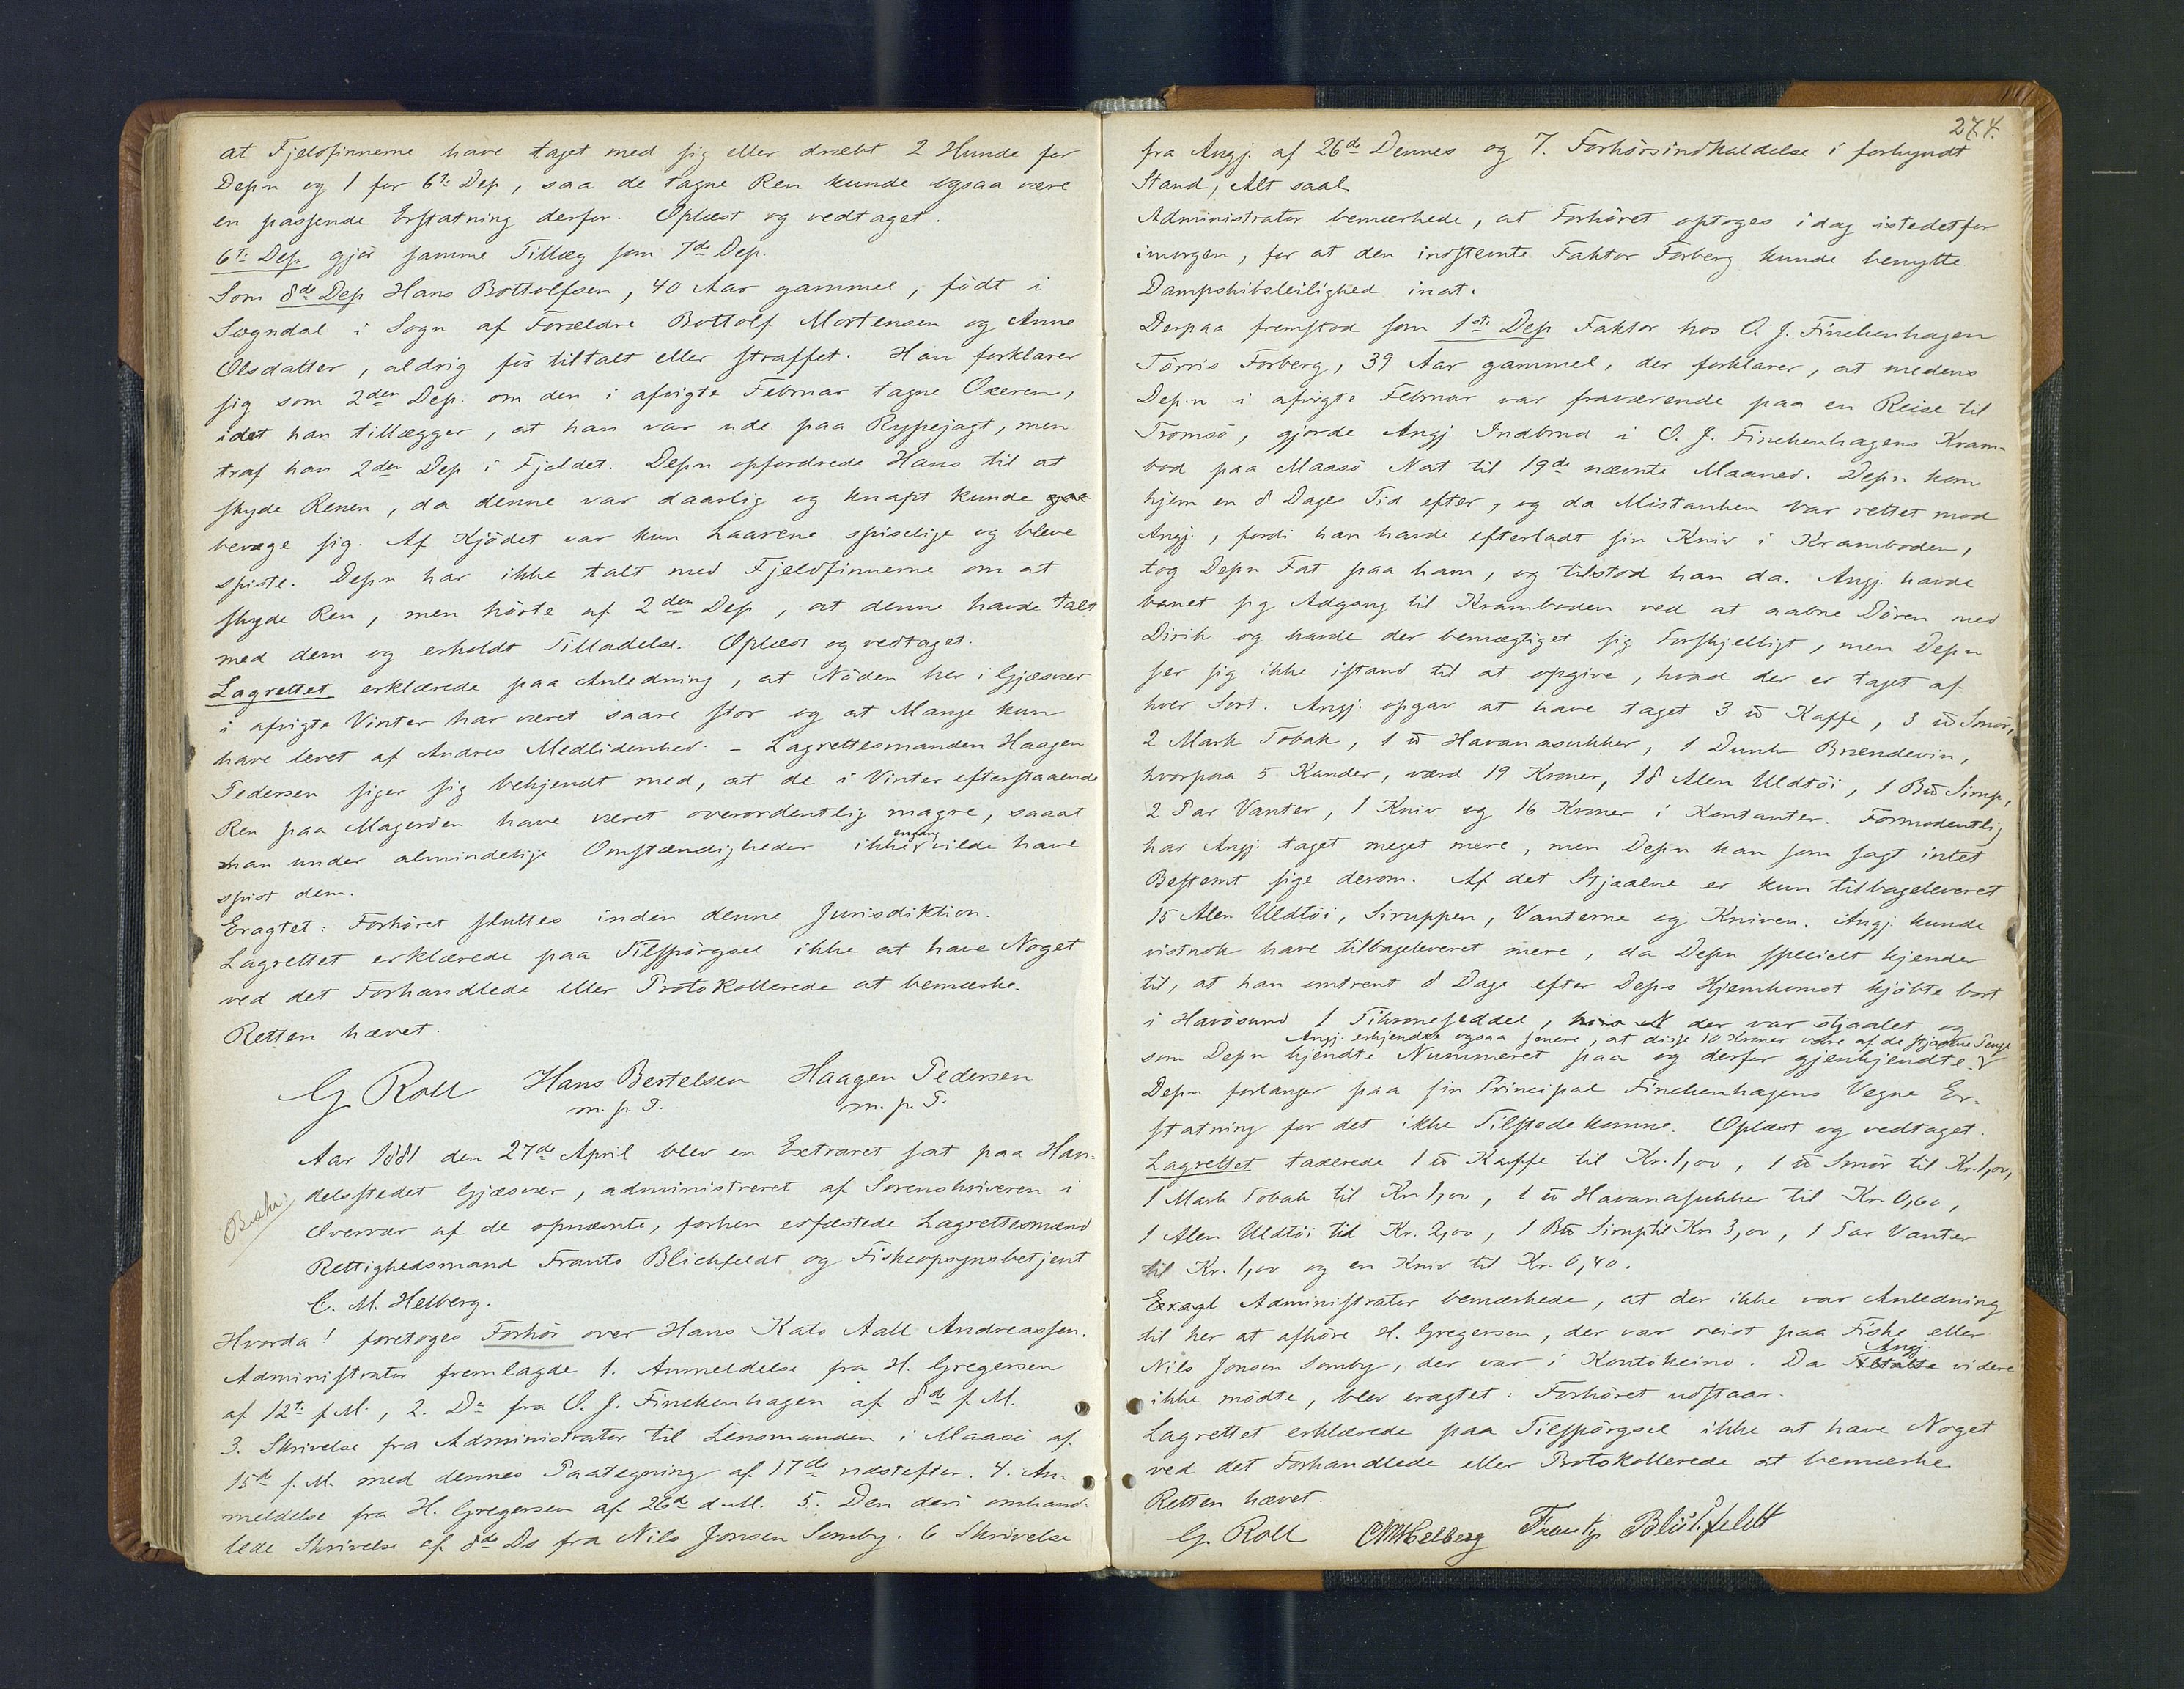 at Fjeldfinnerne have taget med sig eller dræbt 2 Hunde for
Depn og 1 for 6t: Dep, saa de tagne Ren kunde ogsaa være
en passende Erstatning derfor. Oplæst og vedtaget.
6t: Dep gjør samme Tillæg som 7de Dep.
Som 8de Dep Hans Bottolfsen, 40 Aar gammel, født i
Sogndal i Sogn af Forældre Bottolf Mortensen og Anne
Olsdatter, aldrig før tiltalt eller straffet. Han forklarer
sig som 2den Dep. om den i afvigte Februar tagne Oxeren,
idet han tillægger, at han var ude paa Rypejagt, men
traf han 2den Dep i Fjeldet. Depn opfordrede Hans til at
skyde Renen, da denne var daarlig og knapt kunde gaa
bevæge sig. Af Kjødet var kun Laarene spiselige og bleve
spiste. Depn har ikke talt med Fjeldfinnerne om at
skyde Ren, men hørte af 2den Dep, at denne havde talt
med dem og erholdt Tilladelse. Oplæst og vedtaget.
Lagrettet erklærede paa Anledning, at Nøden her i Gjæsvær
i afvigte Vinter har været saare stor og at Mange kun
have levet af Andres Medlidenhed. – Lagrettesmanden Haagen
Pedersen siger sig bekjendt med, at de i Vinter efterstaaende
Ren paa Magerøen have været overordentlig magre, saaat
man under almindelige Omstændigheder ikke engang vilde have
spist dem.
Eragtet: Forhøret sluttes inden denne Jurisdiktion.
Lagrettet erklærede paa Tilspørgsel ikke at have Noget
ved det Forhandlede eller Protokollerede at bemærke.
Retten hævet.
G. Roll Hans Bertelsen Haagen Pedersen
m. p. P. m. p. P.
Aar 1881 den 27de April blev en Extraret sat paa Han-
delsstedet Gjæsvær, administreret af Sorenskriveren i
Overvær af de opnævnte, forhen edfæstede Lagrettesmænd
Rettighedsmand Frants Blichfeldt og Fiskeopsynsbetjent
C. M. Helberg.
Beskr:
Hvorda! foretoges Forhør over Hans Kato Aall Andreassen.
Administrator fremlagde 1. Anmeldelse fra H. Gregersen
af 12t: f. M., 2. Do fra O. J. Finckenhagen af 8de f. M.
3. Skrivelse fra Administrator til Lensmanden i Maasø af
15de f. M. med dennes Paategning af 17de næstefter. 4. An-
meldelse fra H. Gregersen af 26de d. M. 5. Den deri omhand-
lede Skrivelse af 8de Ds fra Nils Jonsen Somby. 6 Skrivelse
274.
fra Angj. af 26de Dennes og 7. Forhørsindkaldelse i forkyndt
Stand, Alt saal.
Administrator bemærkede, at Forhøret optoges idag istedetfor
imorgen, for at den indstevnte Faktor Forberg kunde benytte
Dampskibsleilighed inat.
Derpaa fremstod som 1st: Dep Faktor hos O. J. Finckenhagen
Tørris Forberg, 39 Aar gammel, der forklarer, at medens
Depn i afvigte Februar var fraværende paa en Reise til
Tromsø, gjorde Angj. Indbrud i O. J. Finckenhagens Kram-
bod paa Maasø Nat til 19de nævnte Maaned. Depn kom
hjem en 8 Dages Tid efter, og da Mistanken var rettet mod
Angj., fordi han havde efterladt sin Kniv i Kramboden,
tog Depn Fat paa ham, og tilstod han da. Angj. havde
banet sig Adgang til Kramboden ved at aabne Døren med
Dirik og havde der bemægtiget sig Forskjelligt, men Depn
ser sig ikke istand til at opgive, hvad der er taget af
hver Sort. Angj. opgav at have taget 3 ℔ Kaffe, 3 ℔ Smør,
2 Mark Tobak, 1 ℔ Havanasukker, 1 Dunk Brændevin,
hvorpaa 5 Kander, værd 19 Kroner, 18 Alen Uldtøi, 1 B℔ Sirup,
2 Par Vanter, 1 Kniv og 16 Kroner i Kontanter. Formodentlig
har Angj. taget meget mere, men Depn kan som sagt intet
Bestemt sige derom. Af det Stjaalne er kun tilbageleveret
15 Alen Uldtøi, Siruppen, Vanterne og Kniven. Angj. kunde
vistnok have tilbageleveret mere, da Depn specielt kjender
til, at han omtrent 8 Dage efter Deps Hjemkomst kjøbte bort
i Havøsund 1 Tikroneseddel, der var stjaalet og
Angj. erkjendte ogsaa senere, at disse 10 Kroner vare af de stjaalne Penge
som Depn kjendte Nummeret paa og derfor gjenkjendte.
Depn forlanger paa sin Principal Finckenhagens Vegne Er-
statning for det ikke Tilstedekomne. Oplæst og vedtaget.
Lagrettet taxerede 1 ℔ Kaffe til Kr. 1,00, 1 ℔ Smør til Kr. 1,00,
1 Mark Tobak til Kr. 1,00, 1 ℔ Havanasukker til Kr. 0,60,
1 Alen Uldtøi til Kr. 2,00, 1 B℔ Sirup til Kr. 3,00, 1 Par Vanter
til Kr. 1,00 og en Kniv til Kr. 0,40.
Eragt Administrator bemærkede, at der ikke var Anledning
til her at afhøre H. Gregersen, der var reist paa Fiske eller
Nils Jonsen Somby, der var i Kontokeino. Da Tiltalte Angj. videre
ikke mødte, blev eragtet: Forhøret udstaar.
Lagrettet erklærede paa Tilspørgsel ikke at have Noget
ved det Forhandlede eller Protokollerede at bemærke.
Retten hævet.
G. Roll CMHelberg Frantz Blichfeldt